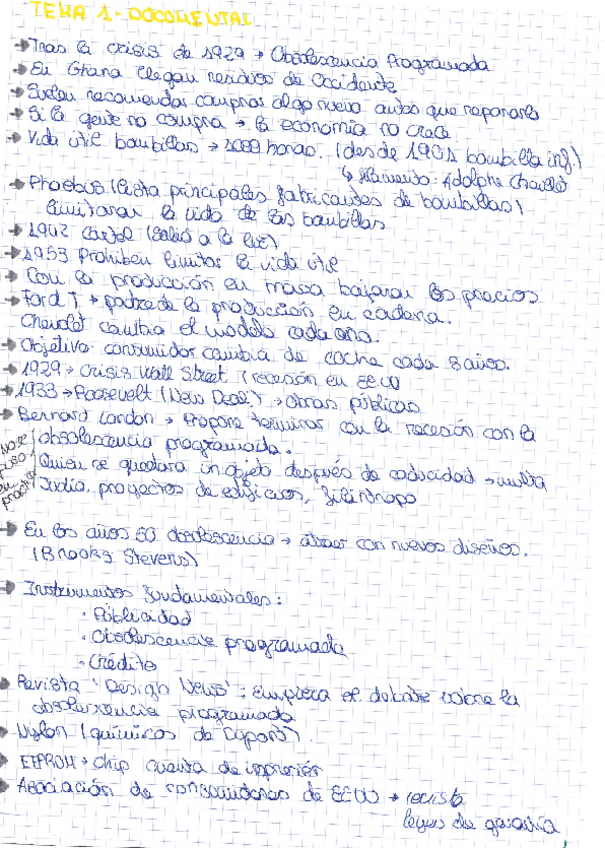 TEMA 1 - DOCUMENTAL
→ Tras la crisis de 1929 → Obsolescencia Programada
→ En Ghana llegan residuos de Occidente
→ Suelen recomendar comprar algo nuevo antes que repararlo
→ Si la gente no compra → la economía no crece
→ Vida útil bombillas → 1000 horas. (desde 1901 bombilla inf.)
↳ filamento: Adolphe Chaillet
→ Phoebus (lista principales fabricantes de bombillas)
limitaron la vida de las bombillas
→ 1942 cartel (salió a la luz)
→ 1953 Prohiben limitar la vida útil
→ Con la producción en masa bajaron los precios
→ Ford T → padre de la producción en cadena.
Chevrolet cambia el modelo cada año.
→ Objetivo: consumidor cambia de coche cada 3 años.
→ 1929 → crisis Wall Street (recesión en EEUU
→ 1933 → Roosevelt (New Deal) → obras públicas
→ Bernard London → propone terminar con la recesión con la
obsolescencia programada.
No se puso en práctica
Quien se quedara un objeto después de caducidad → multa
Judío, proyectos de edificios, filántropo
→ En los años 50 obsolescencia → atraer con nuevos diseños.
(Brooks Stevens)
→ Instrumentos fundamentales:
· Publicidad
· Obsolescencia programada
· Crédito
→ Revista "Design News": empieza el debate sobre la
obsolescencia programada
→ Nylon (químicos de Dupont).
→ EEPROM → chip cuenta de impresión
→ Asociación de consumidores de EEUU → revista
leyes de garantía